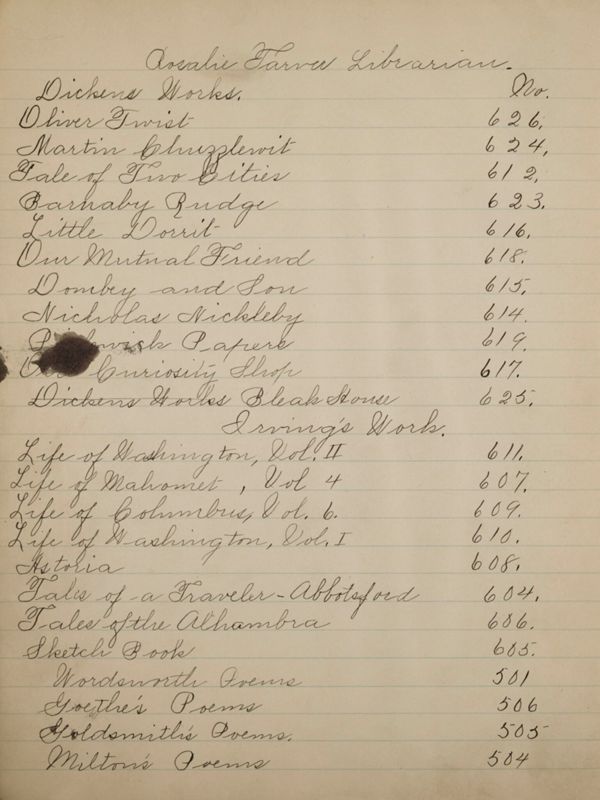 Rosalie Tarver Librarian.
Dickens Works. No.
Oliver Twist 626.
Martin Chuzzlewit 624.
Tale of Two Cities 612.
Barnaby Rudge 623.
Little Dorrit 616.
Our Mutual Friend 618.
Dombey and Son 615.
Nicholas Nickleby 614.
Pickwick Papers 619.
Curiosity Shop 617.
Dickens Works Bleak House 625.
Irving's Work.
Life of Washington, Vol. II 611.
Life of Mahomet, Vol 4 607.
Life of Columbus, Vol. 6. 609.
Life of Washington, Vol. I 610.
Astoria 608.
Tales of a Traveler - Abbotsford 604.
Tales of the Alhambra 606.
Sketch Book 605.
Wordsworth Poems 501
Goethe's Poems 506
Goldsmith's Poems. 505
Milton's Poems 504